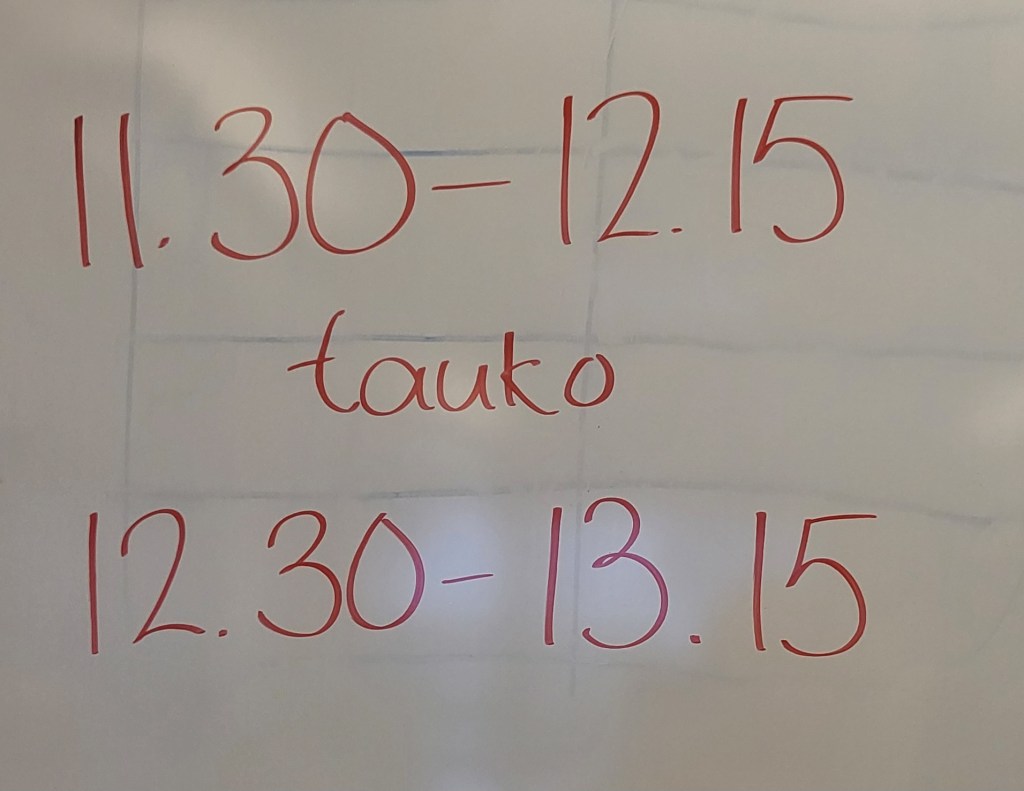 11.30 – 12.15
tauko
12.30 – 13.15